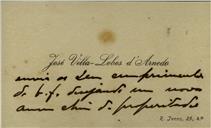 José Villa-Lobos d'Arnedo
envia os seus cumprimentos
de b. f. desejando um novo
anno cheio de prosperidades
R. Ivens, 23, 2.º